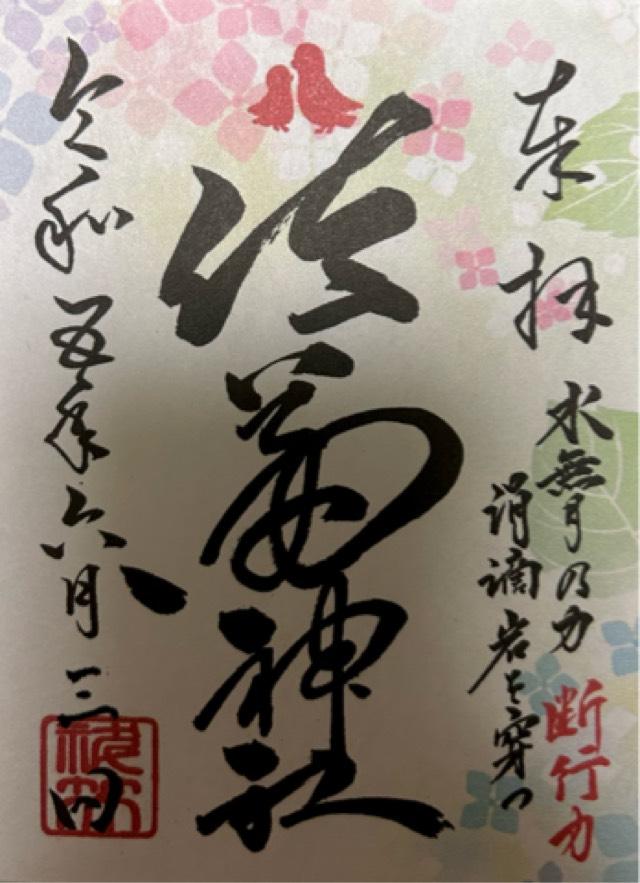 奉拝
水無月乃力 断行力
涓滴岩を穿つ
神社
令和五年六月三日